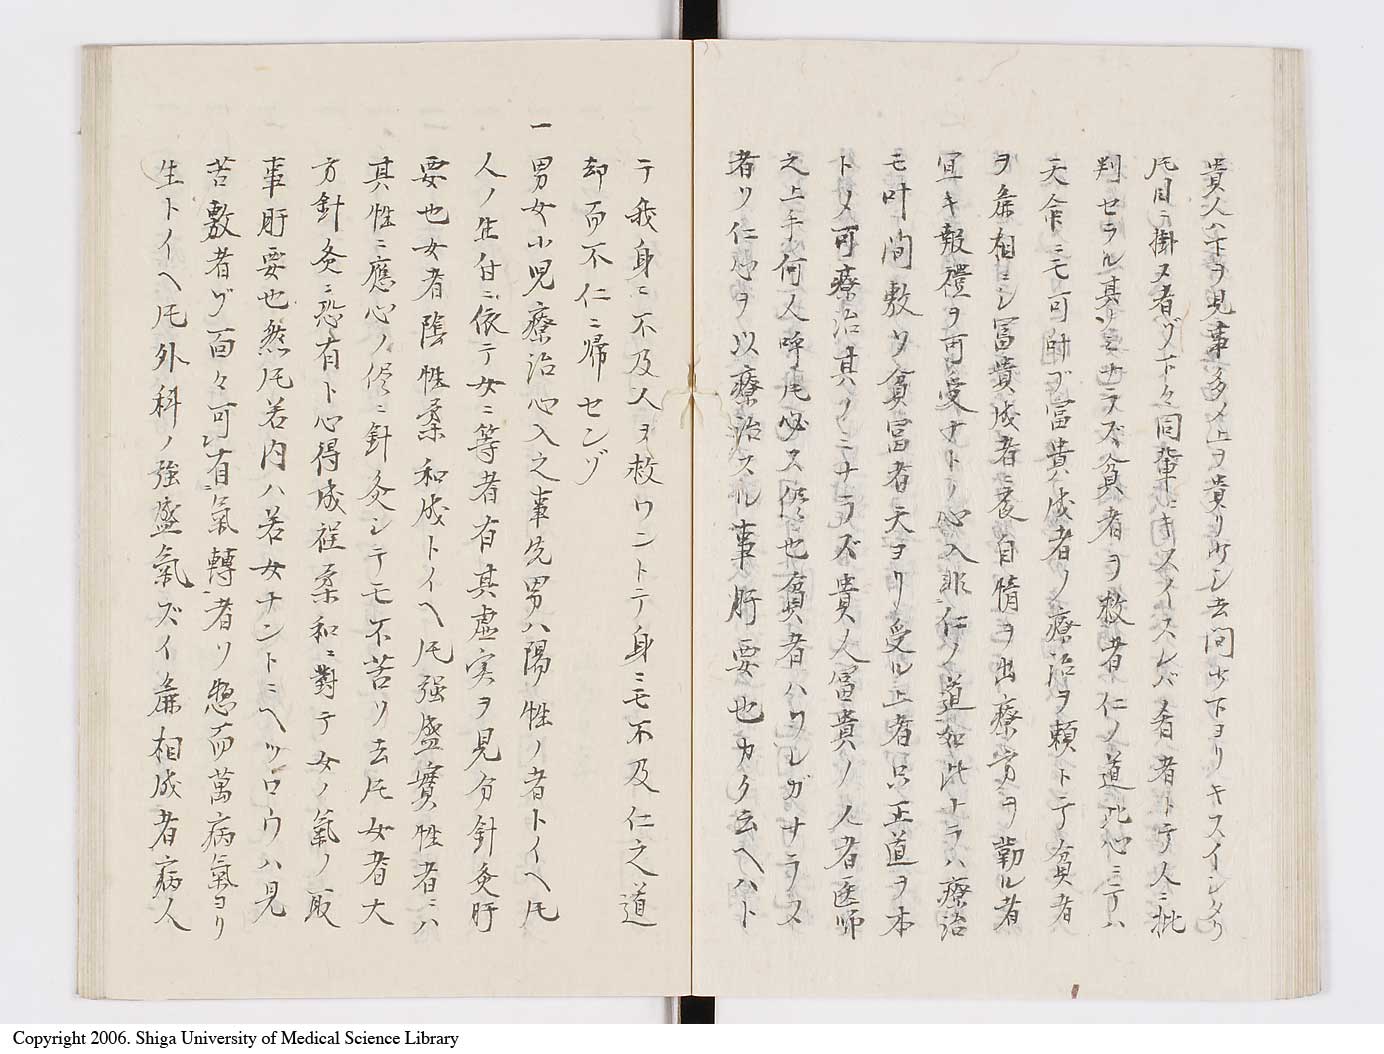 貴人ハ下ヲ見事多メ上ヲ貴リ少シ去間少下ヨリキスイシタリ
圧目ニ掛ヌ者ゾ下々同輩ニキスイスレバ着者トテ人ニ批
判セラル其ノミサラズ貧者ヲ救者仁ノ道此心ミテハ
天命ニモ可叶ゾ冨貴成者ノ療治ヲ頼トテ貧者
ヲ麁相ニシ冨貴成者ニ表自情ヲ出療寮ヲ勤ル者
冝キ報禮ヲ可受ナトヽ心入非仁ノ道如此ナラハ療治
モ叶間敷ソ貧冨者天ヨリ受ル上者只正道ヲ本
トメ可療治其ノミサラズ貴人冨貴ノ人者医師
之上手何人呼圧必ス侭也貧者ハワレガサラス
者ソ仁心ヲ以療治スル事肝要也カク云ヘハト
テ我身ニ不及人ヲ救ワントテ身ニモ不及仁之道
却而不仁ニ帰センゾ
一男女小児療治心入之事先男ハ陽性ノ者トイヘ圧
人ノ生付ニ依テ女ニ等者有其虚実ヲ見分針灸肝
要也女者陰性柔和成トイヘ圧强盛實性者ニハ
其性ニ應心ノ侭ニ針灸シテモ不苦ソ去圧女者大
方針灸ニ恐有ト心得成程柔和ニ對テ女ノ氣ノ取
事肝要也然圧若内ハ若女ナントニヘツロウハ見
苦敷者ゾ面々可有氣轉者ソ惣而萬病氣ヨリ
生トイヘ圧外科ノ強盛氣ズイ麁相成者病人
Copyright 2006. Shiga University of Medical Science Library